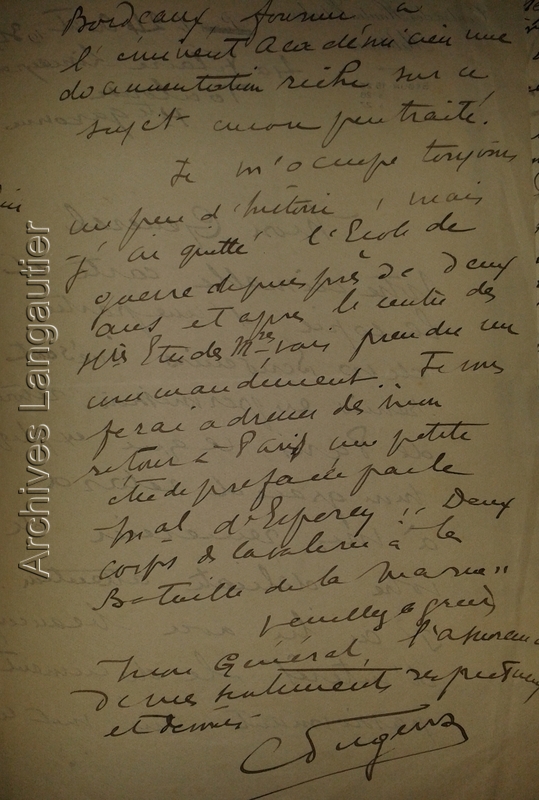 Bordeaux fournir à
l'éminent Académicien une
documentation riche sur ce
sujet encore peu traité.
Je m'occupe toujours
un peu d'histoire, mais
j'ai quitté l'Ecole de
guerre depuis près de deux
ans et après le centre des
Htes Etudes Mres vais prendre un
commandement. Je vous
ferai adresser dès mon
retour à Paris une petite
étude préfacée par le
Mal d'Esperey "Deux
corps de cavalerie à la
Bataille de la Marne"
Veuillez agréer
mon Général, l'assurance
de mes sentiments respectueux
et dévoués
Archives Langautier